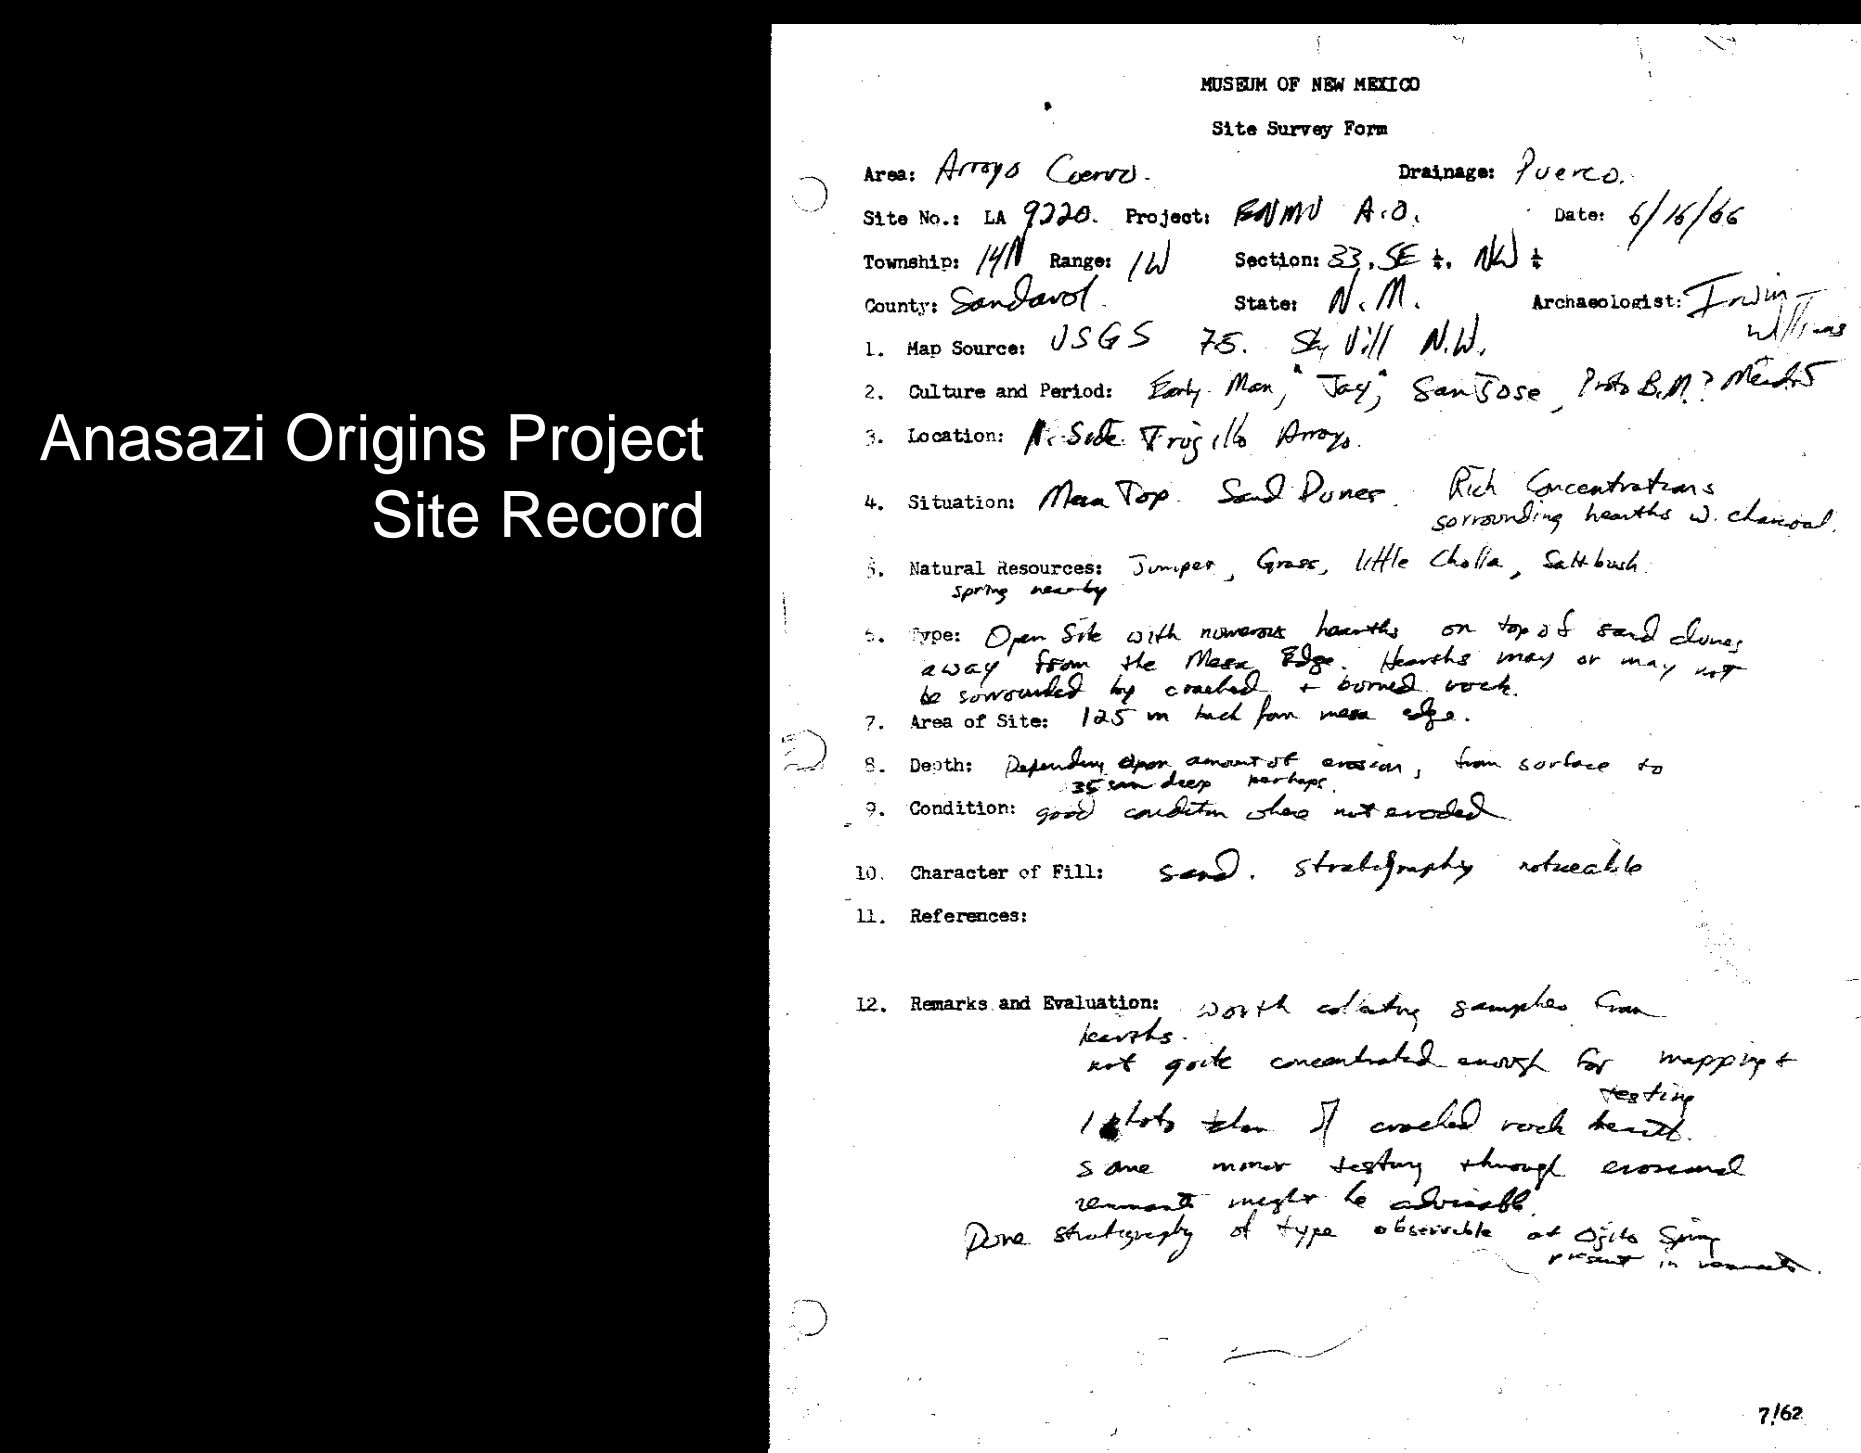 Anasazi Origins Project
Site Record
MUSEUM OF NEW MEXICO
Site Survey Form
Area: Arroyo Cuervo. Drainage: Puerco.
Site No.: LA 9220. Project: ENMU A.O. Date: 6/16/66
Township: 14N Range: 1W Section: 33. SE ¼. NW ¼
County: Sandoval. State: N.M. Archaeologist: Irwin-
Williams
1. Map Source: USGS 7.5. Sky Vill N.W.
2. Culture and Period: Early Man, "Jay", San Jose, Proto B.M.?
3. Location: N. Side Trujillo Arroyo.
4. Situation: Mesa Top. Sand Dunes. Rich Concentrations
sorrounding hearths w. charcoal.
5. Natural Resources: Juniper, Grass, little Cholla, Saltbush.
spring nearby
6. Type: Open Site with numerous hearths on top of sand dunes
away from the Mesa Edge. Hearths may or may not
be sorrounded by cracked + borned rock.
7. Area of Site: 125 m back from mesa edge.
8. Depth: Depending upon amount of erosion, from surface to
35 cm deep perhaps.
9. Condition: good condition where not eroded
10. Character of Fill: sand. stratigraphy noticeable
11. References:
12. Remarks and Evaluation: worth collecting samples from
hearths.
not quite concentrated enough for mapping +
testing
1 photo taken of cracked rock hearth.
some minor testing through erosional
remnants might be advisable.
Dune stratigraphy of type observable at Ojito Spring
present in remnants.
7/62